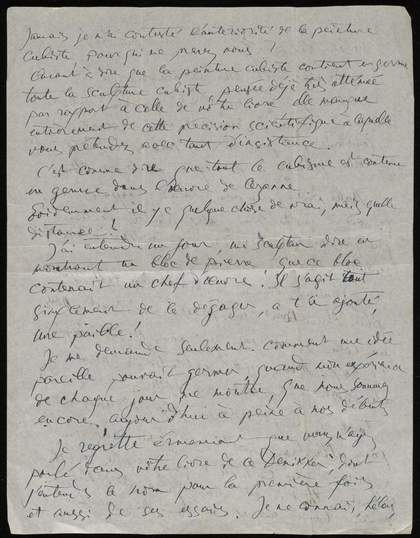 Jamais je n'ai contesté l'antériorité de la peinture
cubiste. Pour qui me prenez vous?
Quant à dire que la peinture cubiste contient en germe
toute la sculpture cubiste, pensée déjà très atténuée
par rapport à celle de votre livre, elle manque
entièrement de cette précision scientifique à laquelle
vous prétendez avec tant d'insistance.
C'est comme dire que tout le cubisme est contenu
en germe dans l'œuvre de Cezanne.
Evidemment il y a quelque chose de vrai, mais quelle
distance!
J'ai entendu un jour, un sculpteur dire en
montrant un bloc de pierre que ce bloc
contenait un chef d'œuvre. Il s'agit tout
simplement de le dégager, a t'il ajouté,
une paille!
Je me demande seulement comment une idée
pareille pouvait germer, quand mon expérience
de chaque jour me montre, que nous sommes
encore aujourd'hui à peine à nos débuts
Je regrette énormément que vous n'ayez
parlé dans votre livre de ce Denikker, dont
j'entends le nom pour la première fois
et aussi de ses essais. Je ne connais, hélas,